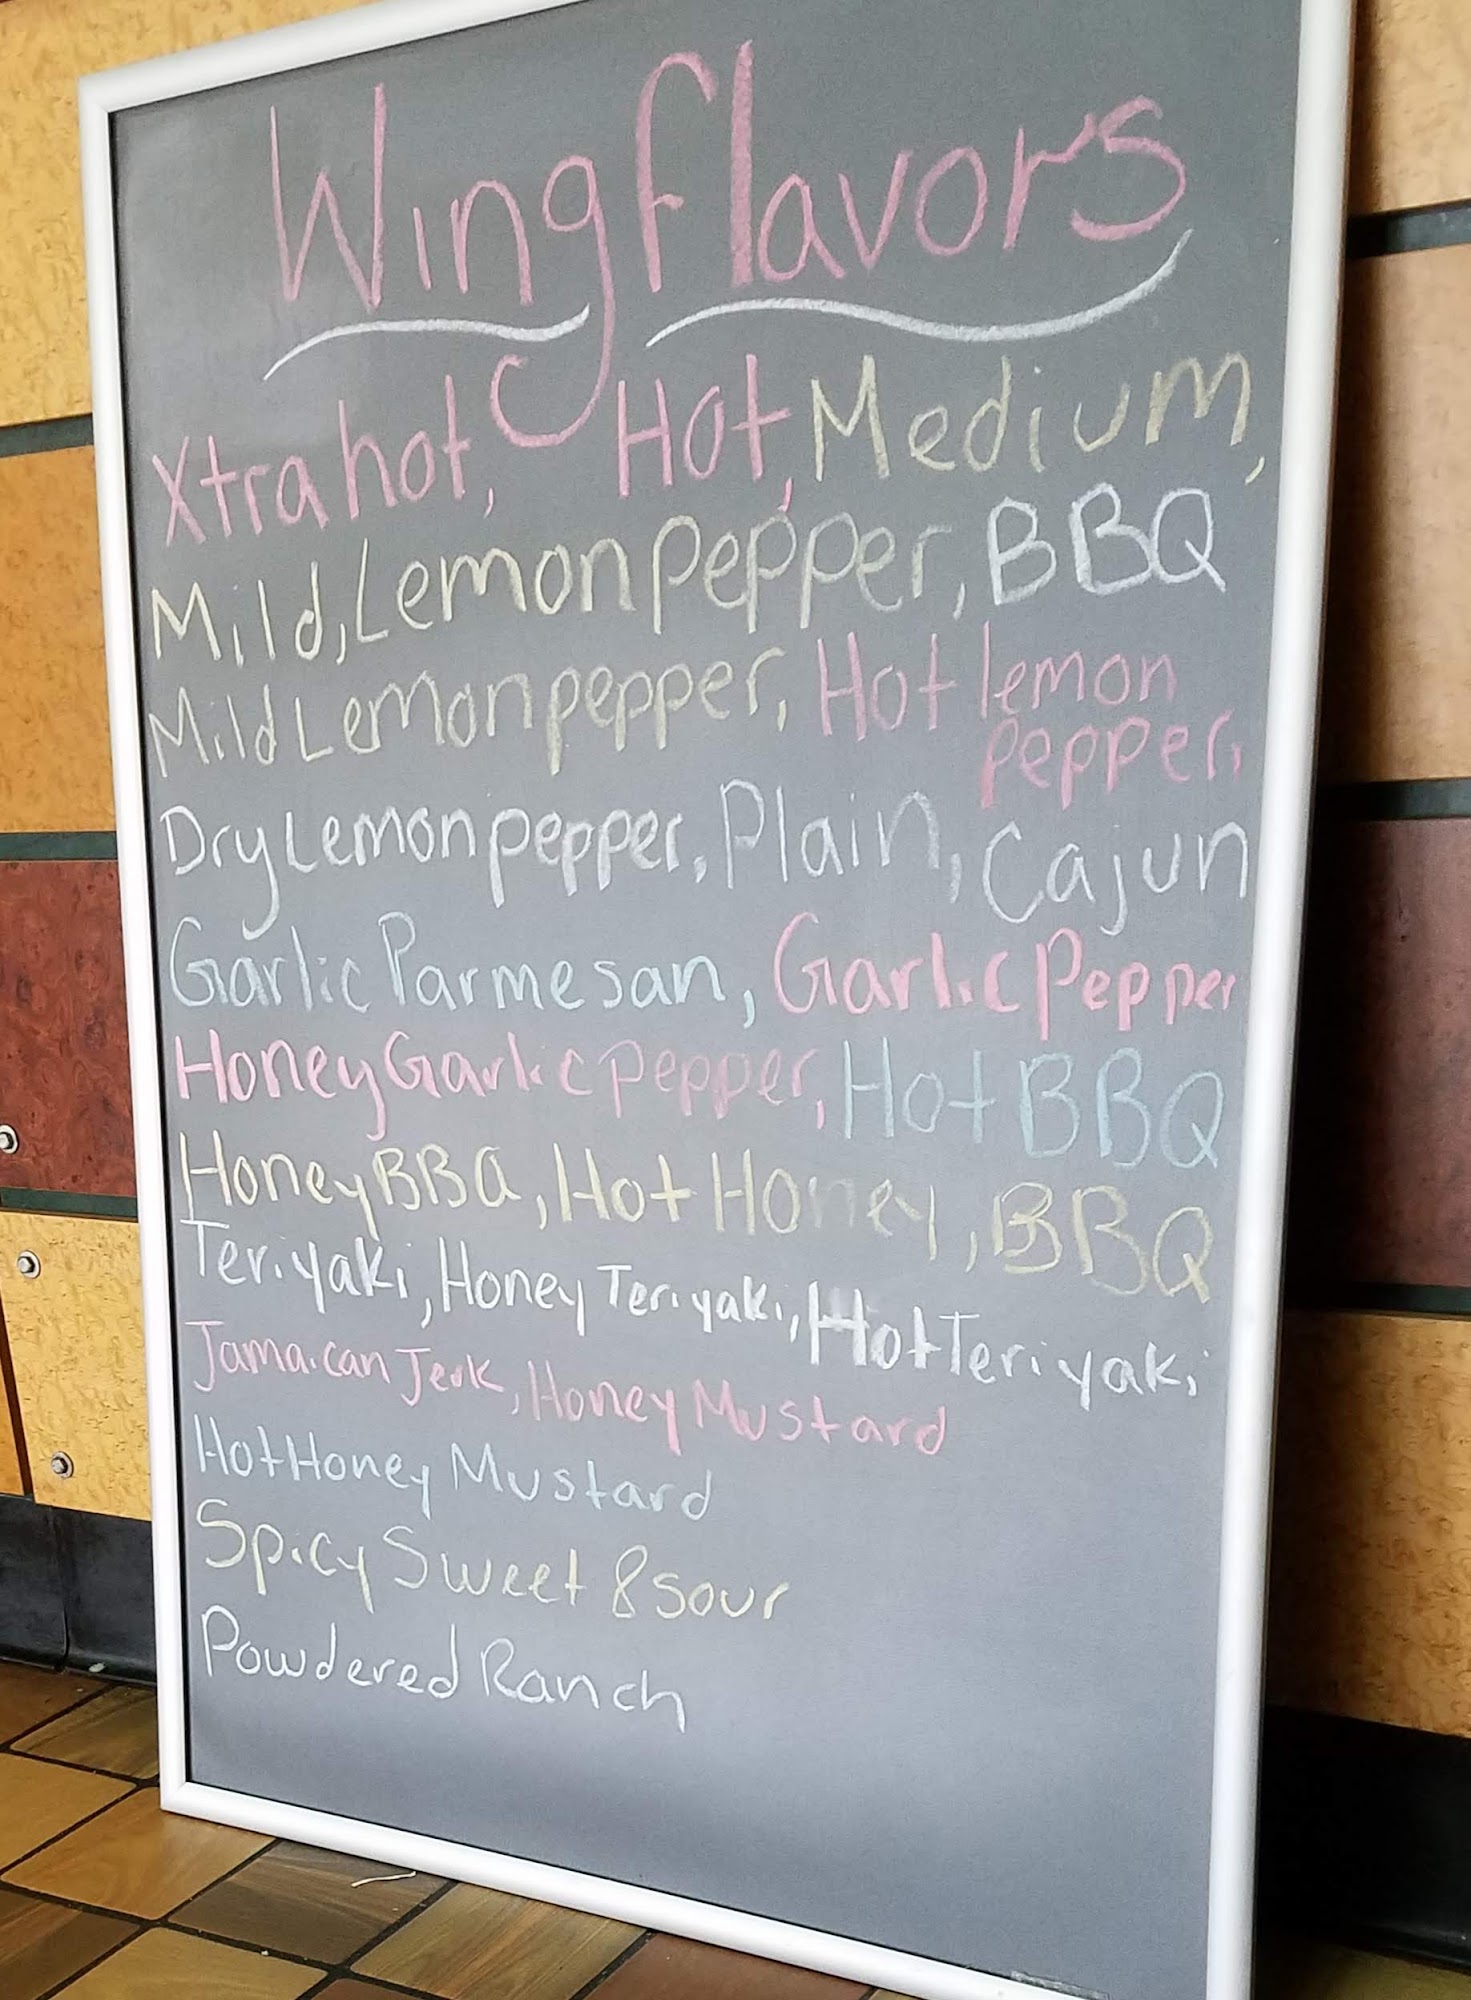 Wing Flavors
Xtra hot, Hot, Medium,
Mild, Lemon pepper, BBQ
Mild Lemon pepper, Hot lemon
pepper,
Dry Lemon pepper, Plain, Cajun
Garlic Parmesan, Garlic Pepper
Honey Garlic pepper, Hot BBQ
Honey BBQ, Hot Honey, BBQ
Teriyaki, Honey Teriyaki, Hot Teriyaki,
Jamaican Jerk, Honey Mustard
Hot Honey Mustard
Spicy Sweet & sour
Powdered Ranch